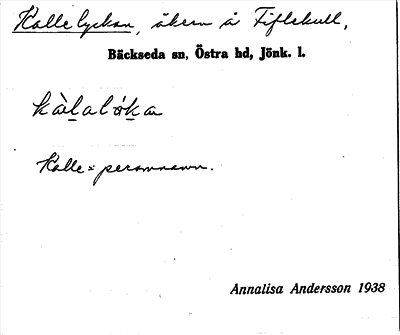 Kallelyckan, åkern å Fiflekull,
Bäckseda sn, Östra hd, Jönk. l.
Kalle = personnamn.
Annalisa Andersson 1938